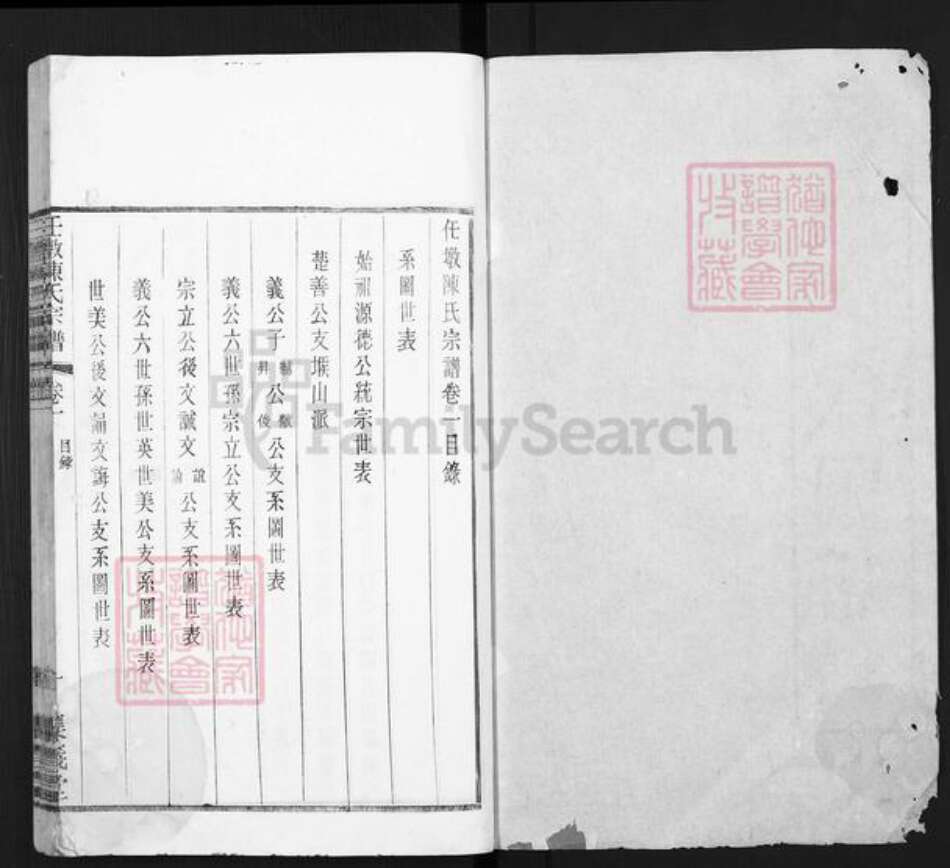 任墩陳氏宗譜卷一目錄
系圖世表
始祖源德公統宗世表
楚善公支堠山派
義公子昇公俊公支系圖世表
義公六世孫宗立公支系圖世表
宗立公後文誠文說公支系圖世表
義公六世孫世英世美公支系圖世表
世美公後文誨公支系圖世表
任墩陳氏宗譜
卷一
目錄
一
猶他家譜學會收藏
猶他家譜學會收藏
FamilySearch